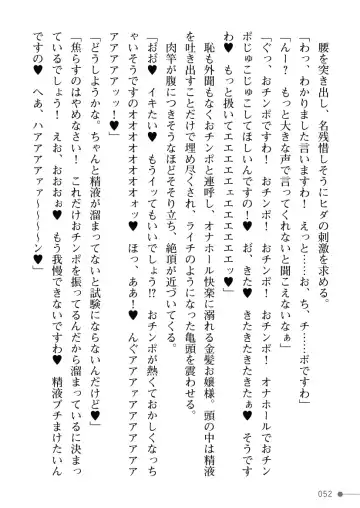 腰を突き出し、名残惜しそうにヒダの刺激を求める。
「わっ、わかりました言いますわ！　えっと……お、ち、チ……ポですわ」
「んー？　もっと大きな声で言ってくれないと聞こえないなぁ」
「ぐっ、おチンポですわ！　おチンポ！　おチンポ！　オナホールでおチン
ポじゅこじゅこしてほしいんですの！♥　お、きた♥　きたきたきたきたぁ♥　そうです
わ♥　もっと扱いてエエエエエエエエエッ♥」
恥も外聞もなくおチンポと連呼し、オナホール快楽に溺れる金髪お嬢様。頭の中は精液
を吐き出すことだけで埋め尽くされ、ライチのような亀頭を震わせる。
肉竿が腹につきそうなほどそそり立ち、絶頂が近づいてくる。
「おお♥　イキたい♥　もうイッてもいいでしょう!?　おチンポが熱くておかしくなっち
ゃいそうですのオオオオオオオオォッ♥　ほっ、ああ！♥　んぐアアァアアアアアアアア
アアアアアッッ！♥」
「どうしようかな。ちゃんと精液が溜まってないと試験にならないんだけど♥」
「焦らすのはやめなさい！　これだけおチンポを振ってるんだから溜まっているに決まっ
ているでしょう！　えお、おおぉぉ♥　もう我慢できないですわ♥　精液ブチまけたいん
ですの♥　へあ、ハアアアアァァ〜〜〜〜ン♥」
052